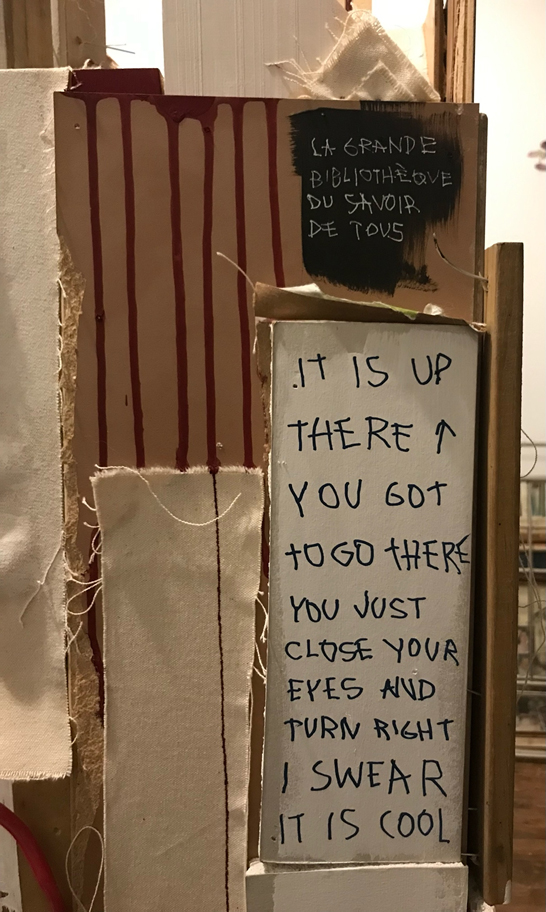 LA GRANDE
BIBLIOTHÈQUE
DU SAVOIR
DE TOUS
.IT IS UP
THERE ↑
YOU GOT
TO GO THERE
YOU JUST
CLOSE YOUR
EYES AND
TURN RIGHT
I SWEAR
IT IS COOL